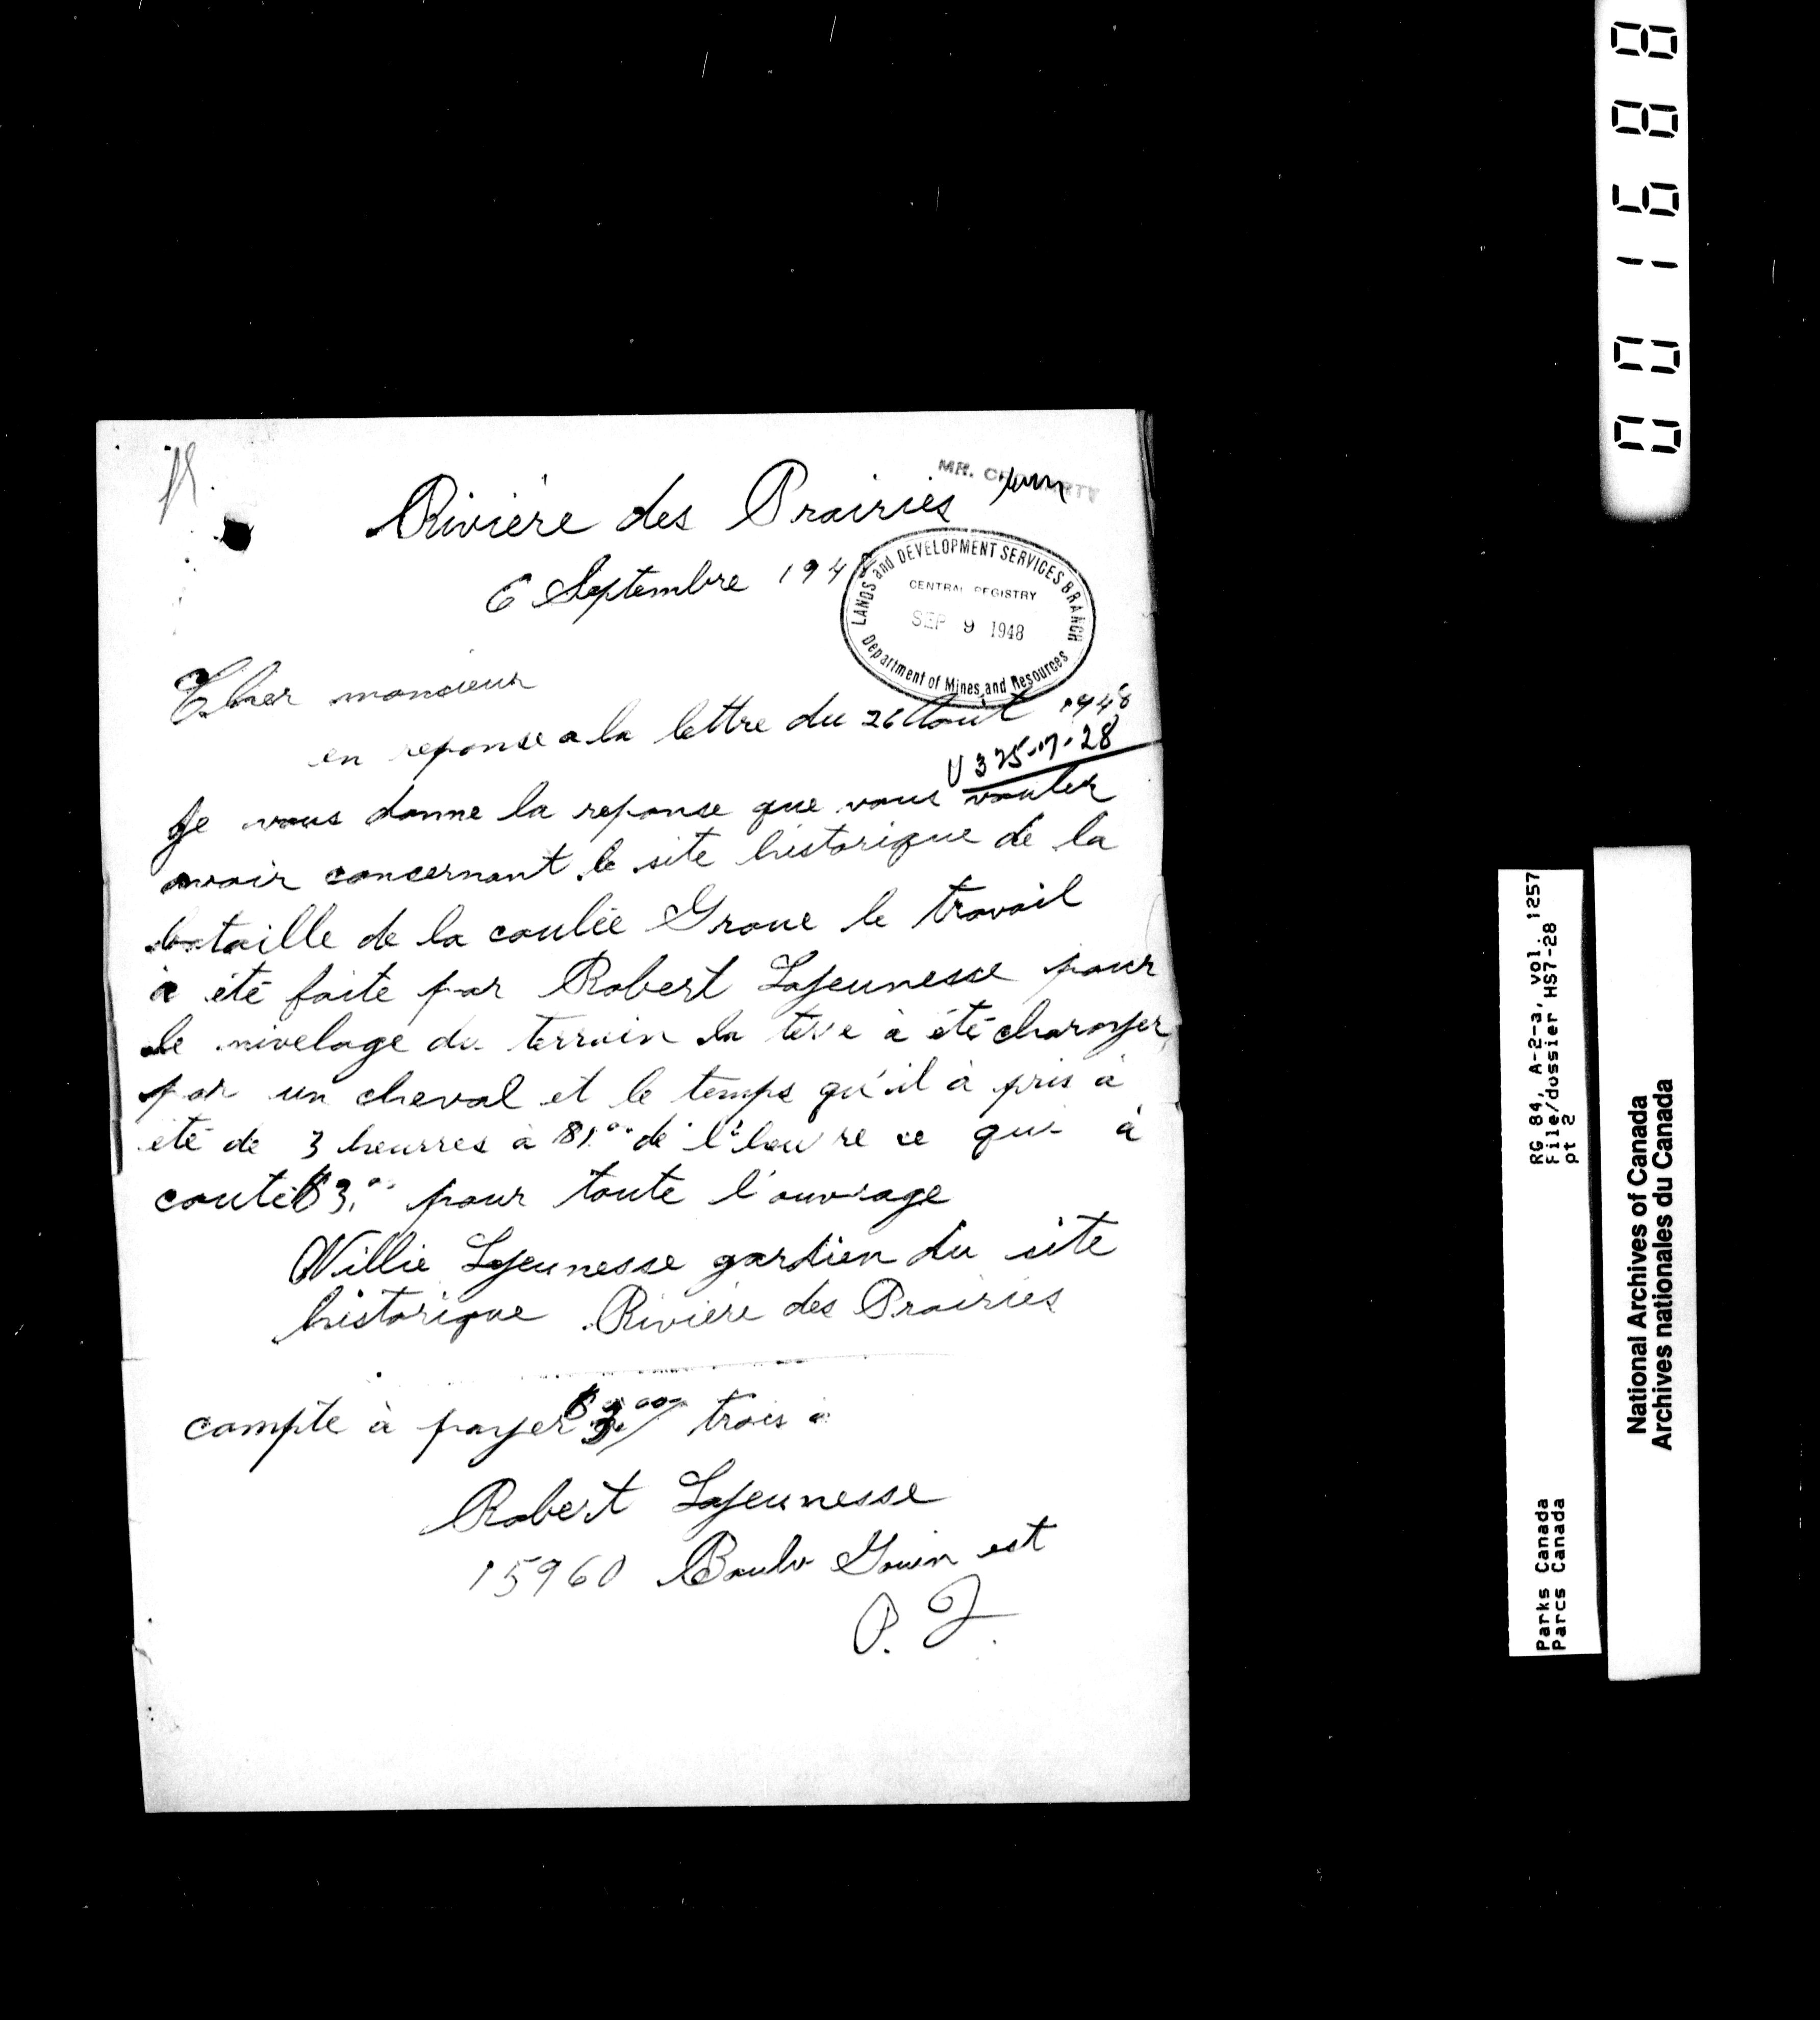 Rivière des Prairies
MR.
6 Septembre 194
LANDS and DEVELOPMENT SERVICES BRANCH
CENTRAL REGISTRY
SEP 9 1948
Department of Mines and Resources
Cher moncieur
en reponse a la lettre du 26 Août 1948
U 325-7-28
Je vous donne la reponse que vous vouler
avoir concernant le site historique de la
bataille de la coulée Groue le travail
à été faite par Robert Lajeunesse pour
le nivelage du terrain la terre à été charoyer
par un cheval et le temps qu'il à pris à
été de 3 heurres à $1.00 de l'heure ce qui à
couté $3.00 pour toute l'ouvrage
Willie Lajeunesse gardien du site
historique Rivière des Prairies
compte à payer $3.00 trois à
Robert Lajeunesse
15960 Boulv Gouin est
0 0 1 6 8 8
RG 84, A-2-a, vol. 1257
File/dossier HS7-28
pt 2
Parks Canada
Parcs Canada
National Archives of Canada
Archives nationales du Canada